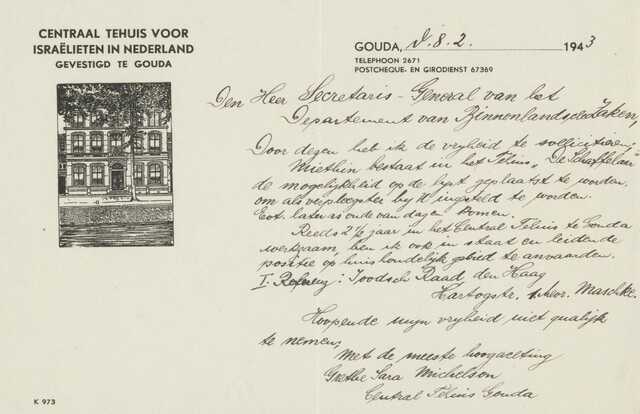 CENTRAAL TEHUIS VOOR
ISRAËLIETEN IN NEDERLAND
GEVESTIGD TE GOUDA
GOUDA, d. 8. 2. 1943
TELEPHOON 2671
POSTCHEQUE- EN GIRODIENST 67369
Den Heer Secretaris-General van het
Departement van Binnenlandsche Zaken,
Door dezen heb ik de vryheid te sollicitieren,
bestaat in het Tehuis „De Schaffelaar"
de mogelijkheid op de lyst geplaatst te worden,
om als verpleegster by U ingesteld te worden.
Evt. later is onde van dagen komen.
Reeds 2½ jaar in het Central Tehuis te Gouda
werkzaam, ben ik ook in staat en leidende
positie op huishoudelyk gebied te anvaarden.
I. : Joodsch Raad den Haag
Hartogstr. Maschke.
Hoopende myn vryheid niet qualyk
te nemen,
met de meeste hoogachting
Grethe Sara Michelson
Central Tehuis Gouda
K 973